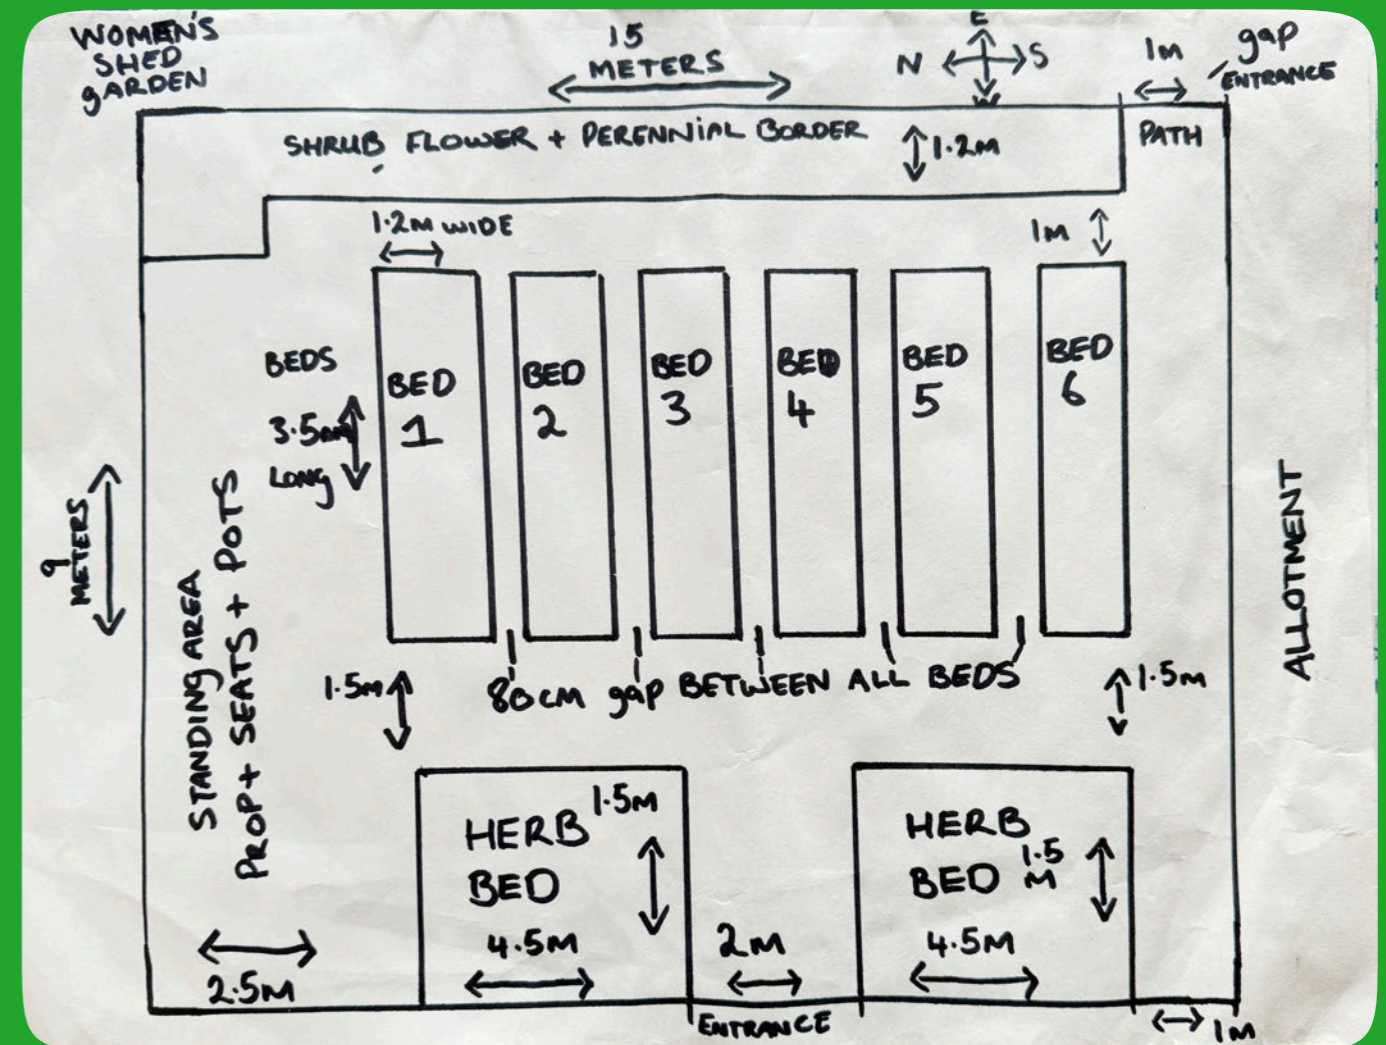 WOMEN'S
SHED
gARDEN
15
METERS
E
N
S
W
1M
gap
ENTRANCE
SHRUB FLOWER + PERENNIAL BORDER
1.2M
PATH
1.2M WIDE
1M
BEDS
3.5M
LONG
BED
1
BED
2
BED
3
BED
4
BED
5
BED
6
9
METERS
STANDING AREA
PROP + SEATS + POTS
ALLOTMENT
1.5M
80cm gap BETWEEN ALL BEDS
1.5M
HERB
BED
1.5M
4.5M
2M
HERB
BED
1.5
M
4.5M
2.5M
ENTRANCE
1M